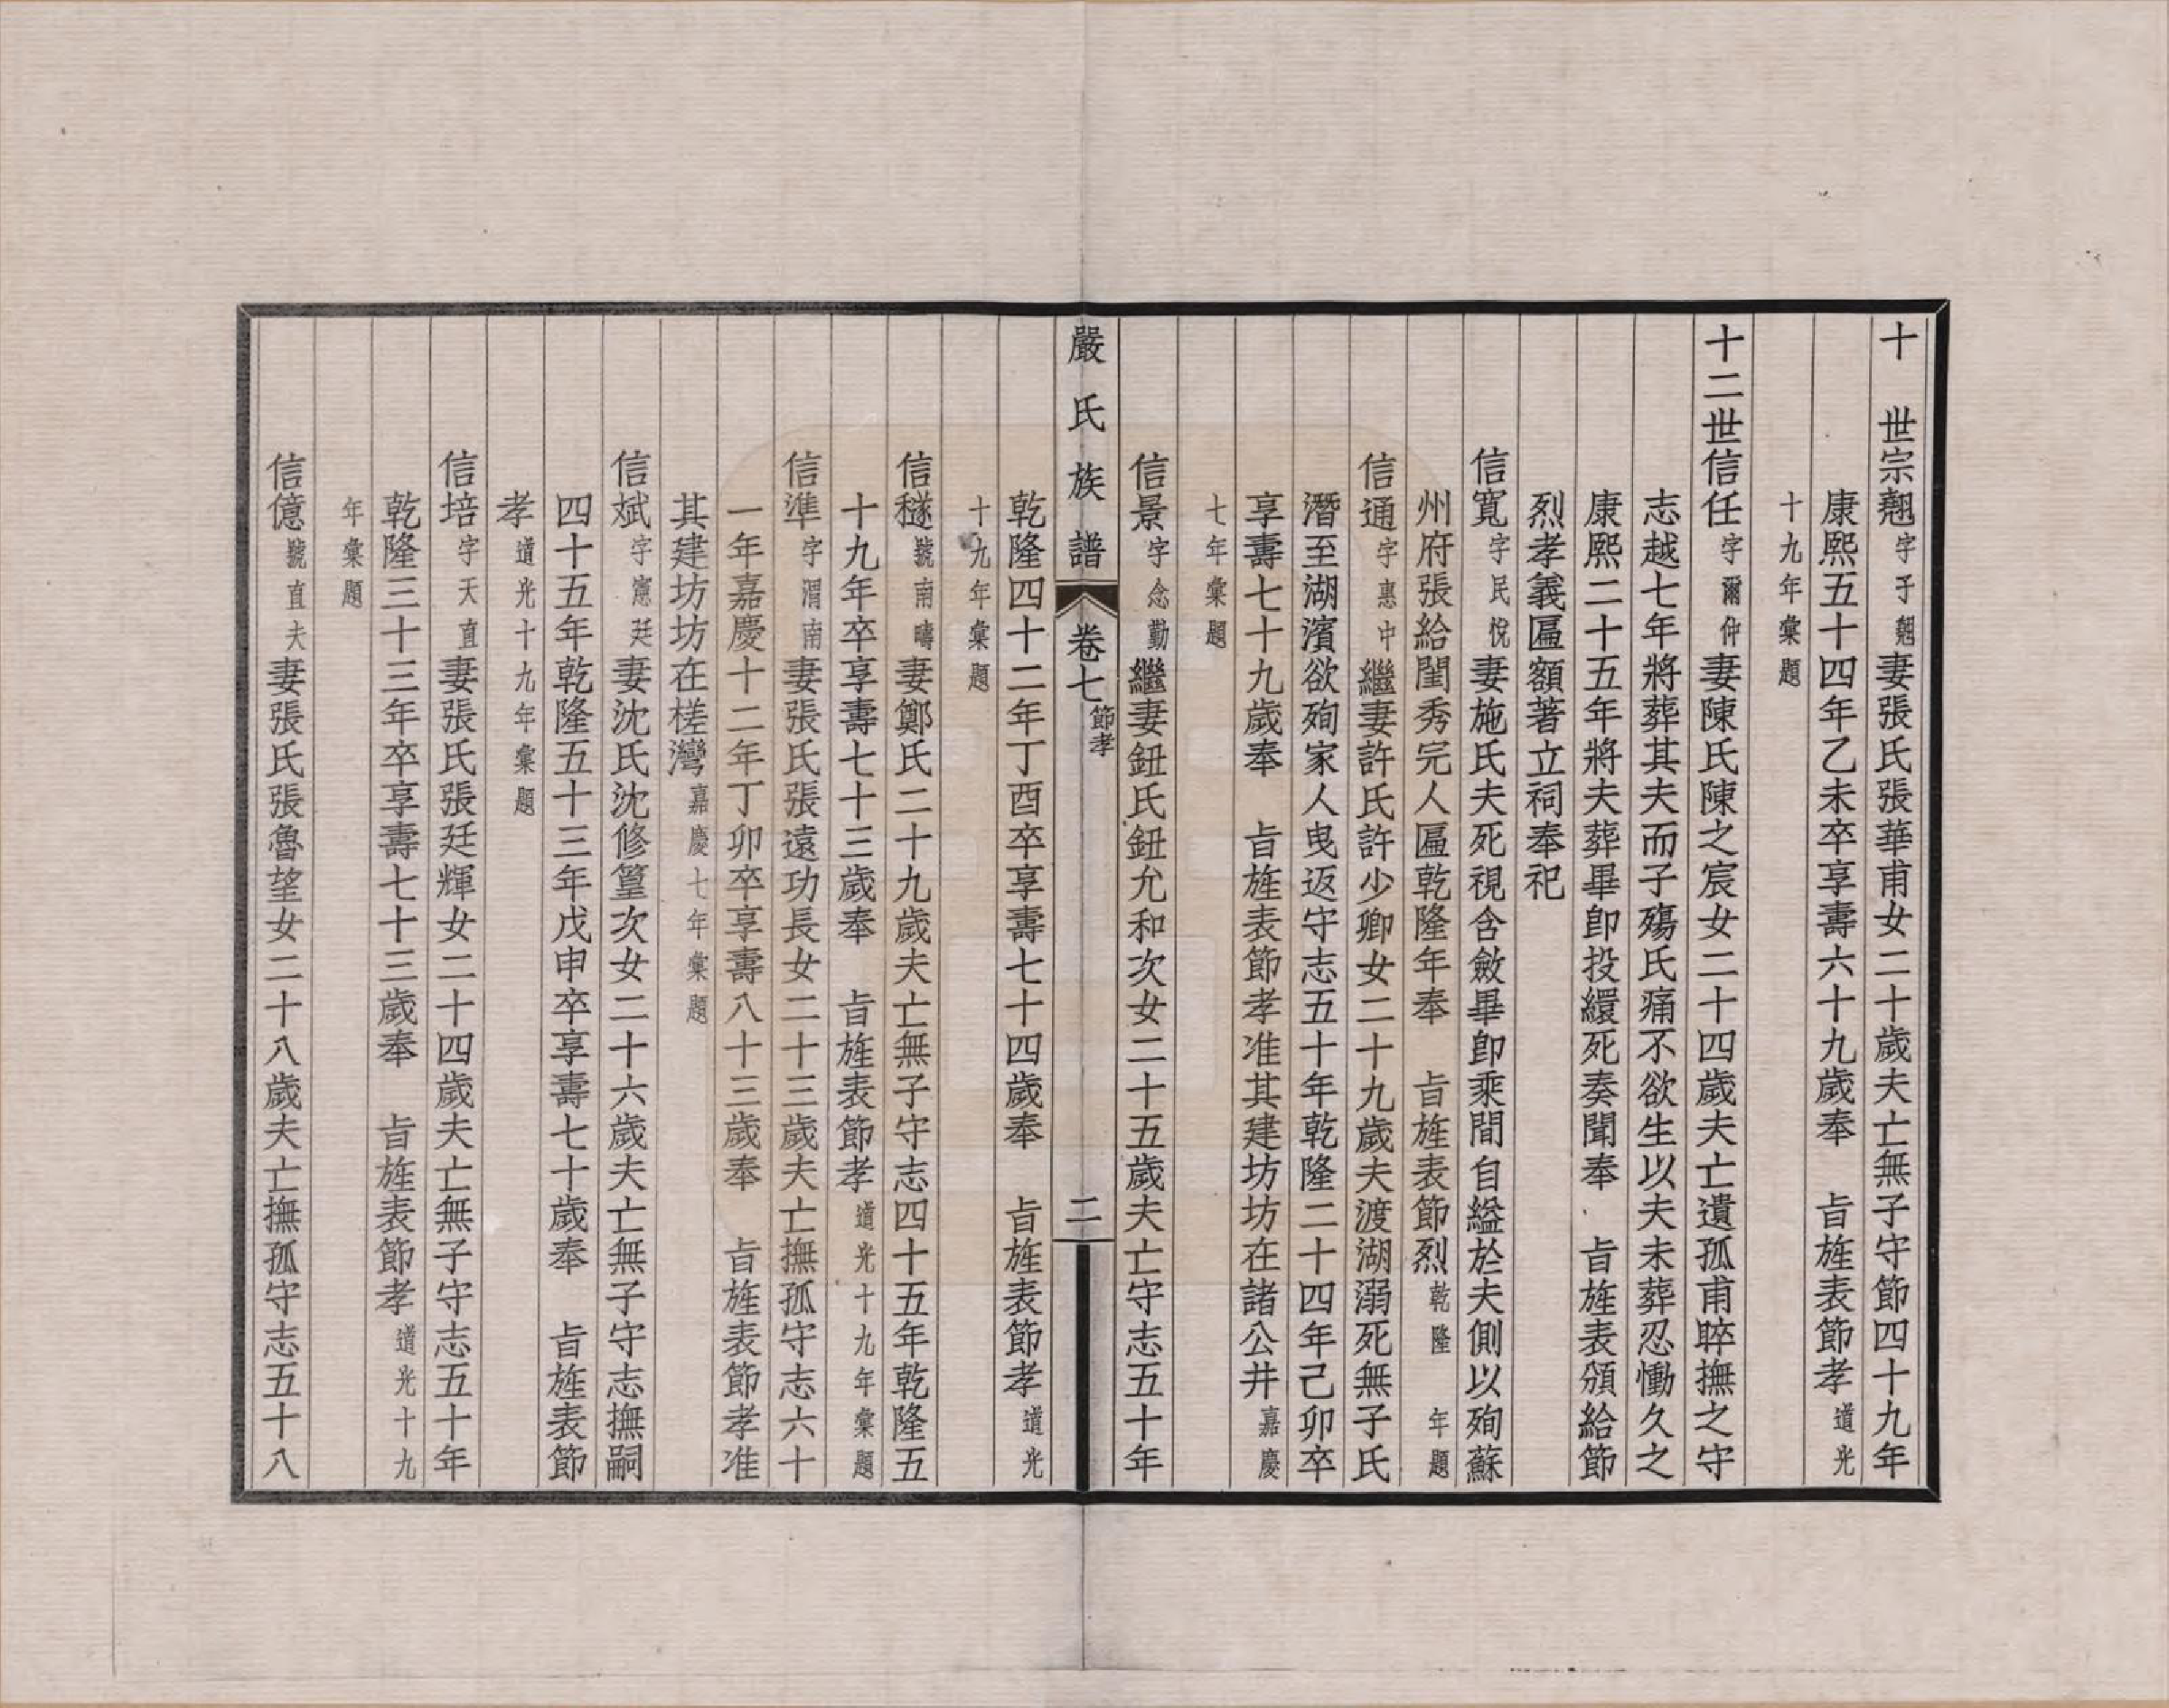 十　世宗翹字子翹妻張氏張華甫女二十歲夫亡無子守節四十九年
康熙五十四年乙未卒享壽六十九歲奉　旨旌表節孝道光
十九年彙題
十二世信任字爾仲妻陳氏陳之宸女二十四歲夫亡遺孤甫晬撫之守
志越七年將葬其夫而子殤氏痛不欲生以夫未葬忍慟久之
康熙二十五年將夫葬畢卽投繯死奏聞奉　旨旌表頒給節
烈孝義匾額著立祠奉祀
信寬字民悅妻施氏夫死視含斂畢卽乘間自縊於夫側以殉蘇
州府張給閨秀完人匾乾隆年奉　旨旌表節烈乾隆　年題
信通字惠中繼妻許氏許少卿女二十九歲夫渡湖溺死無子氏
潛至湖濱欲殉家人曳返守志五十年乾隆二十四年己卯卒
享壽七十九歲奉　旨旌表節孝准其建坊坊在諸公井嘉慶
七年彙題
信景字念勤繼妻鈕氏鈕允和次女二十五歲夫亡守志五十年
嚴氏族譜　卷七　節孝　二
乾隆四十二年丁酉卒享壽七十四歲奉　旨旌表節孝道光
十九年彙題
信穟號南疇妻鄭氏二十九歲夫亡無子守志四十五年乾隆五
十九年卒享壽七十三歲奉　旨旌表節孝道光十九年彙題
信準字渭南妻張氏張遠功長女二十三歲夫亡撫孤守志六十
一年嘉慶十二年丁卯卒享壽八十三歲奉　旨旌表節孝准
其建坊坊在槎灣嘉慶七年彙題
信斌字憲廷妻沈氏沈修篁次女二十六歲夫亡無子守志撫嗣
四十五年乾隆五十三年戊申卒享壽七十歲奉　旨旌表節
孝道光十九年彙題
信培字天直妻張氏張廷輝女二十四歲夫亡無子守志五十年
乾隆三十三年卒享壽七十三歲奉　旨旌表節孝道光十九
年彙題
信億號直夫妻張氏張魯望女二十八歲夫亡撫孤守志五十八